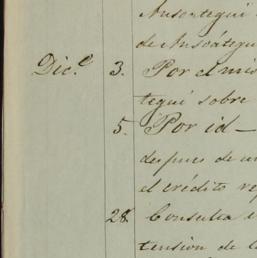 Ansoategui
de Ansoátegui
Dic.e 3. Por el mis
tegui sobre
5. Por id —
despues de un
el crédito re
28. Consulta
tension de l